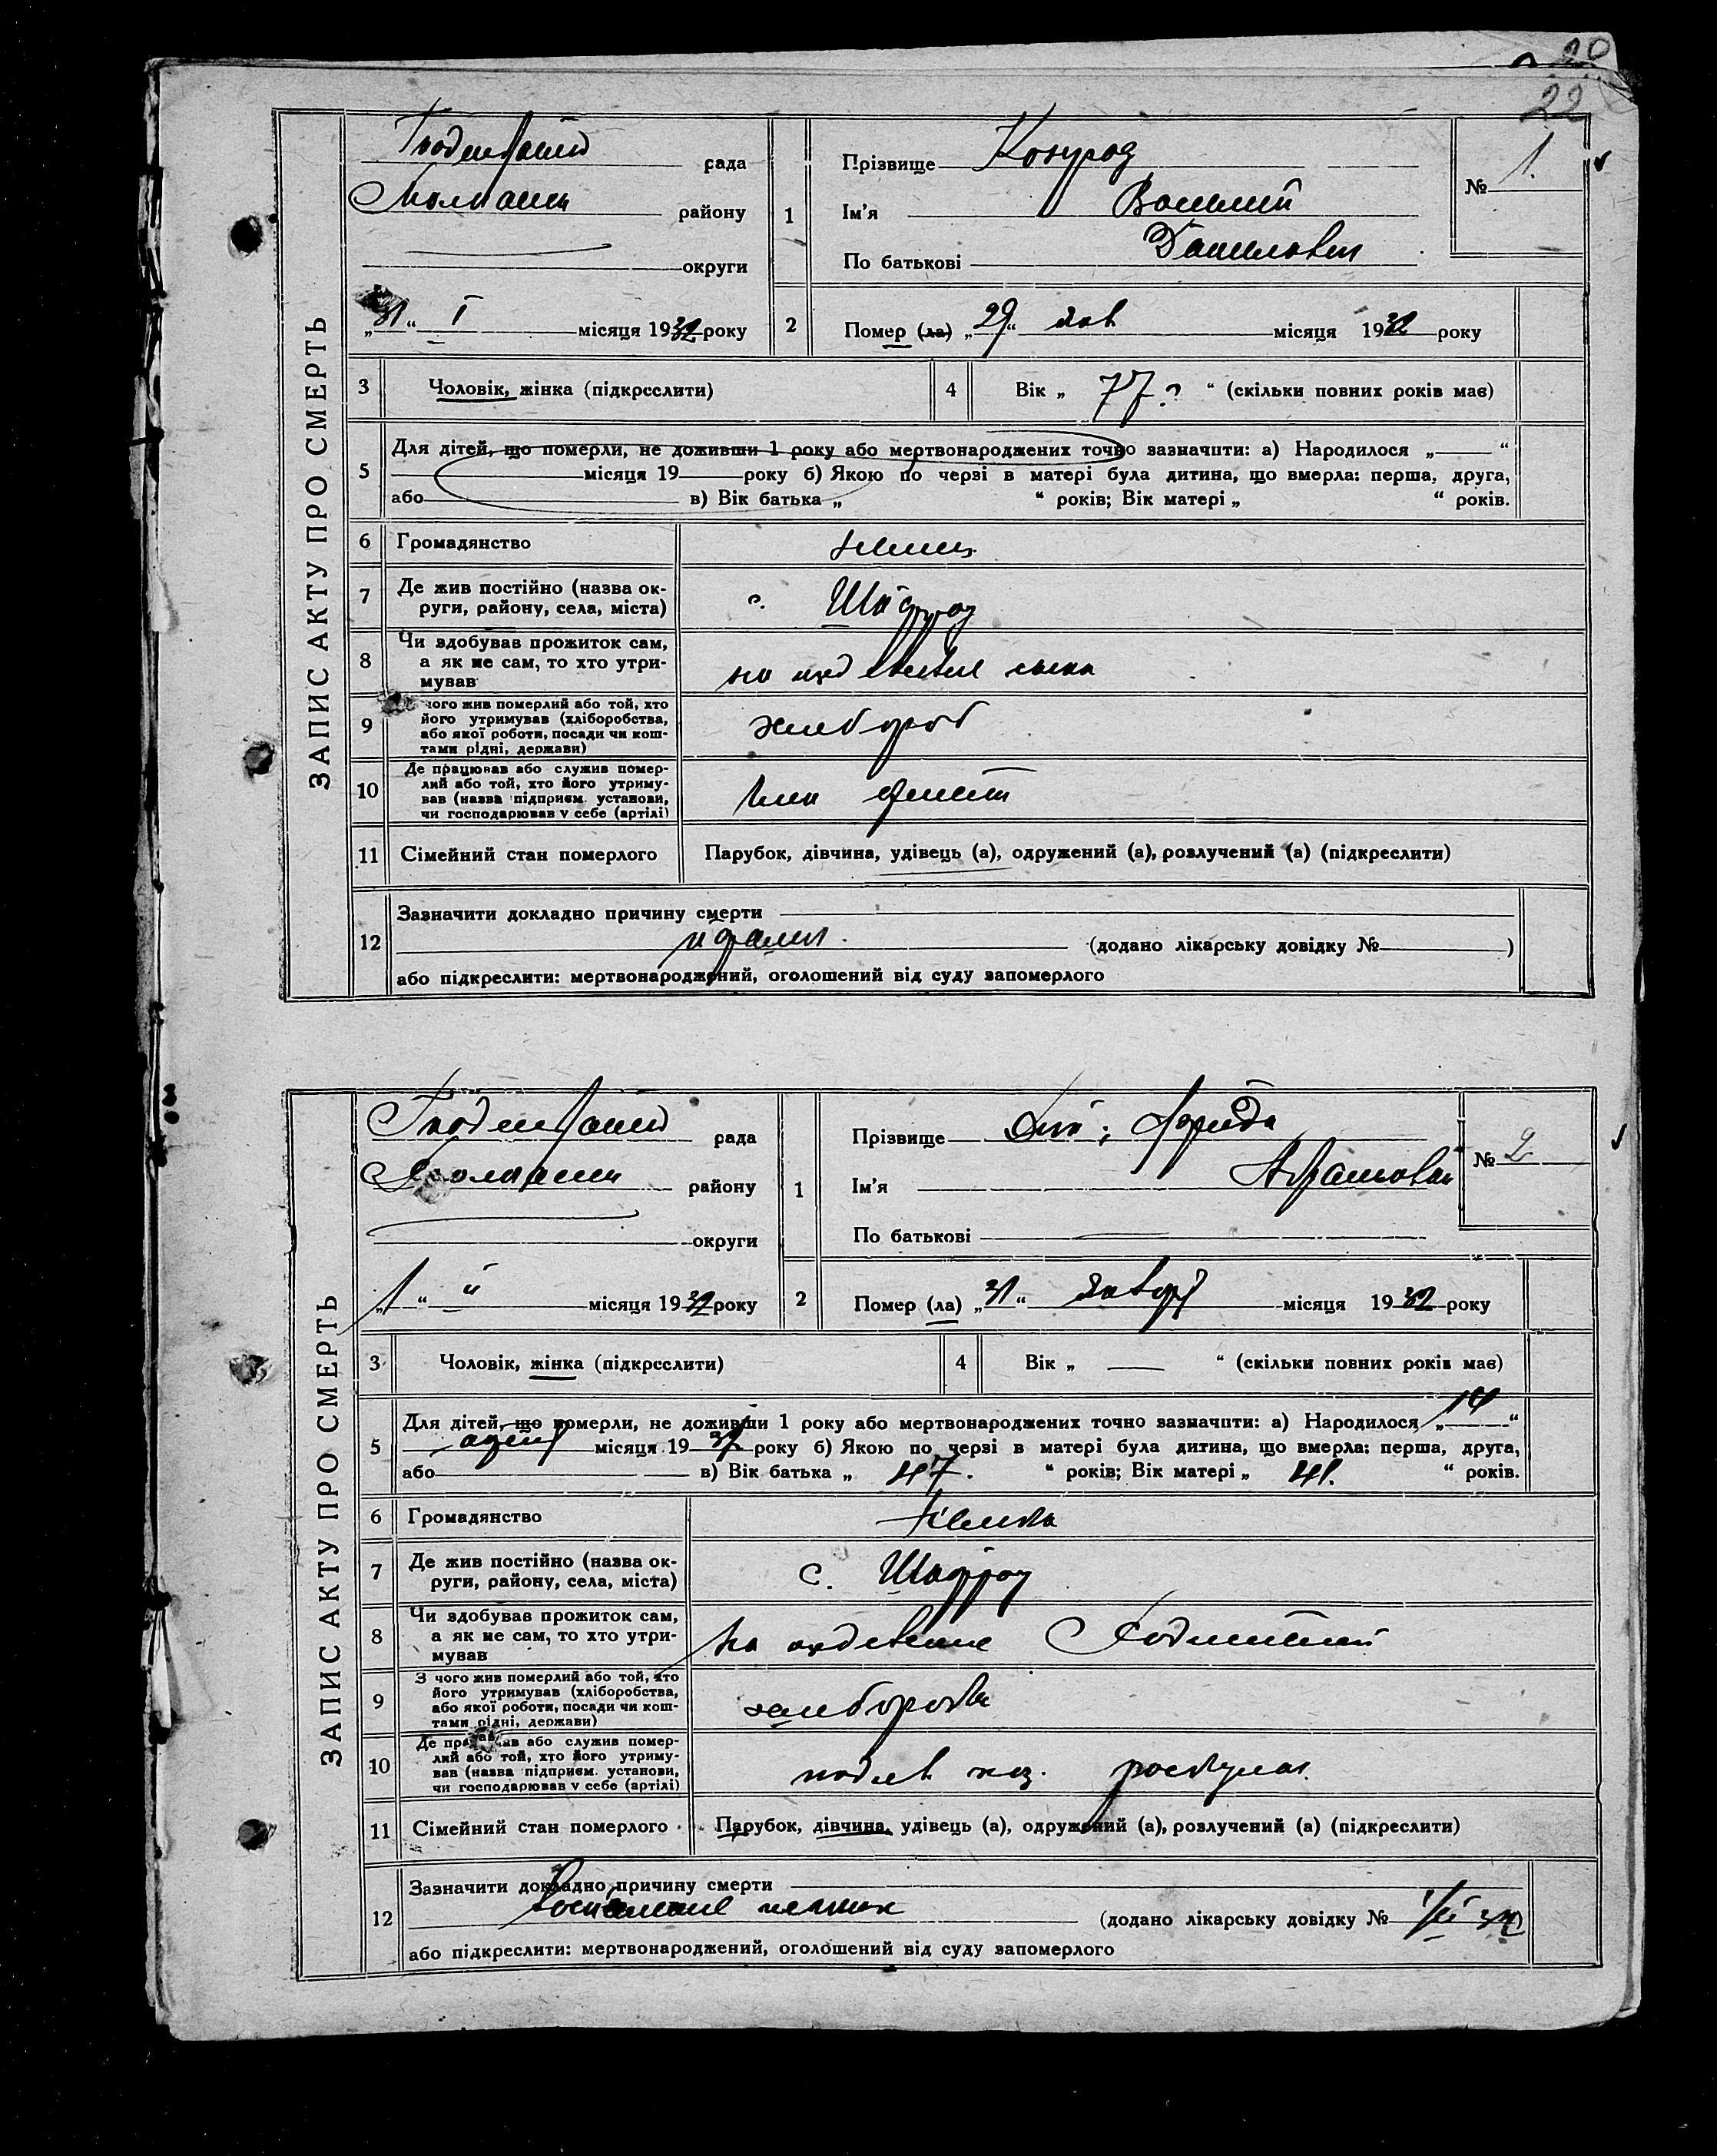 22
ЗАПИС АКТУ ПРО СМЕРТЬ
рада
району
округи
„31“ I місяця 1932 року
1 Прізвище Конрад
Ім'я Василий
По батькові Данилович
№ 1.
2 Помер (ла) „29“ янв місяця 1932 року
3 Чоловік, жінка (підкреслити)
4 Вік „ 77 ? “ (скільки повних років має)
5 Для дітей, що померли, не доживши 1 року або мертвонароджених точно зазначити: а) Народилося „ “
місяця 19 року б) Якою по черзі в матері була дитина, що вмерла: перша, друга,
або в) Вік батька „ “ років; Вік матері „ “ років.
6 Громадянство немец
7 Де жив постійно (назва ок-
руги, району, села, міста) с.
8 Чи здобував прожиток сам,
а як не сам, то хто утри-
мував
на иждевении сына
9 чого жив померлий або той, хто
його утримував (хліборобства,
або якої роботи, посади чи кош-
тами рідні, держави)
хлебороб
10 Де працював або служив помер-
лий або той, хто його утриму-
вав (назва підприєм. установи,
чи господарював у себе (артілі)
член
11 Сімейний стан померлого Парубок, дівчина, удівець (а), одружений (а), розлучений (а) (підкреслити)
12 Зазначити докладно причину смерти
(додано лікарську довідку № )
або підкреслити: мертвонароджений, оголошений від суду запомерлого
ЗАПИС АКТУ ПРО СМЕРТЬ
рада
району
округи
„1“ II місяця 1932 року
1 Прізвище Фрида
Ім'я
По батькові
№ 2
2 Помер (ла) „31“ январ місяця 1932 року
3 Чоловік, жінка (підкреслити)
4 Вік „ — “ (скільки повних років має)
5 Для дітей, що померли, не доживши 1 року або мертвонароджених точно зазначити: а) Народилося „14“
місяця 19 року б) Якою по черзі в матері була дитина, що вмерла: перша, друга,
або в) Вік батька „ 47. “ років; Вік матері „ 41. “ років.
6 Громадянство Немка
7 Де жив постійно (назва ок-
руги, району, села, міста) с.
8 Чи здобував прожиток сам,
а як не сам, то хто утри-
мував
на иждевение Родителей
9 З чого жив померлий або той, хто
його утримував (хліборобства,
або якої роботи, посади чи кош-
тами рідні, держави)
хлебороба
10 Де працював або служив помер-
лий або той, хто його утриму-
вав (назва підприєм. установи,
чи господарював у себе (артілі)
11 Сімейний стан померлого Парубок, дівчина, удівець (а), одружений (а), розлучений (а) (підкреслити)
12 Зазначити докладно причину смерти
Воспаление легких
(додано лікарську довідку № 1/II 32)
або підкреслити: мертвонароджений, оголошений від суду запомерлого